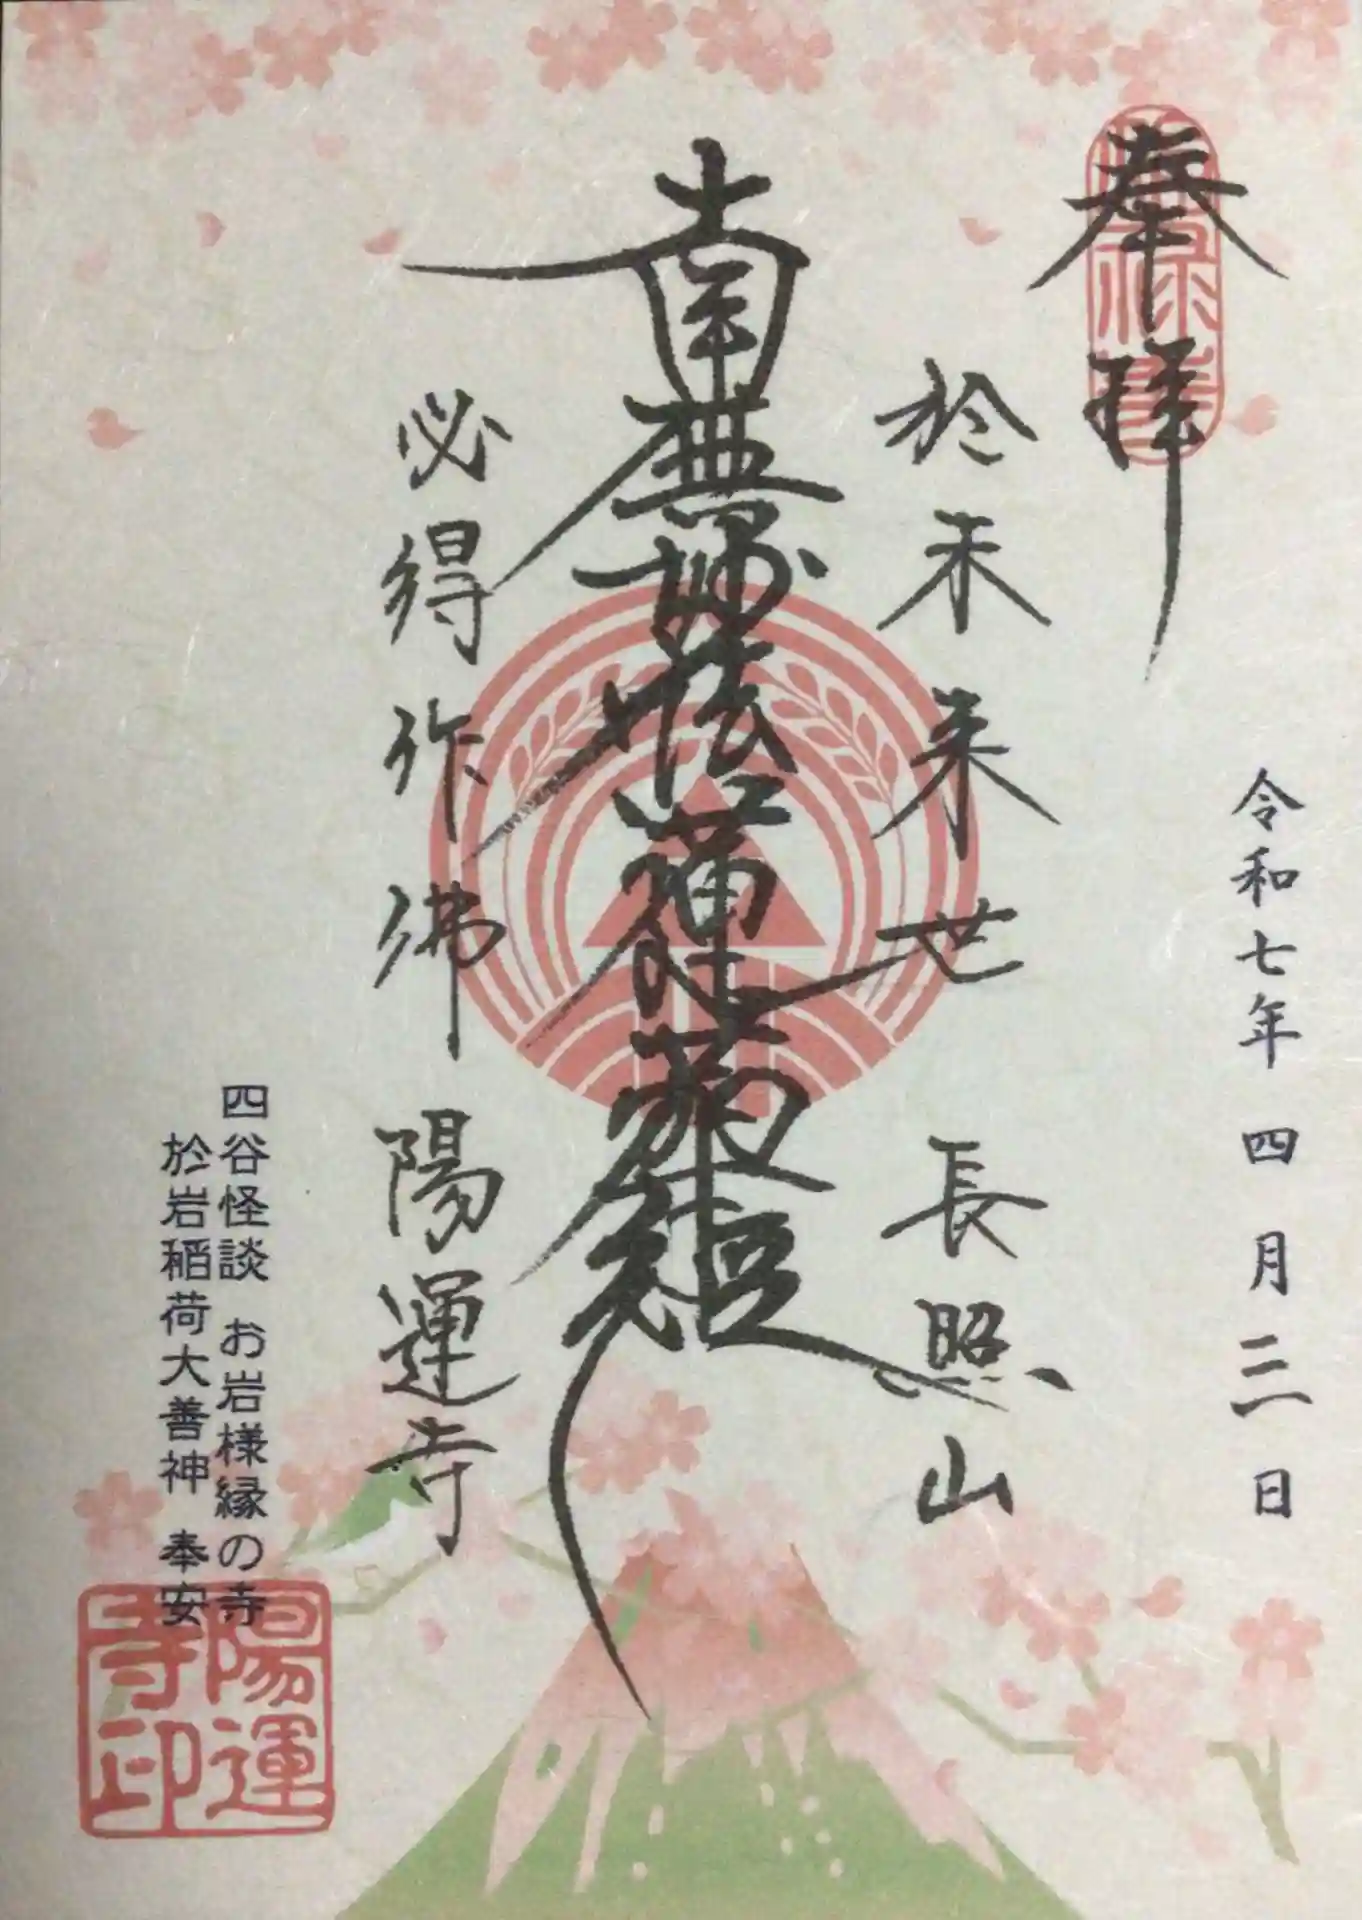 奉拝
令和七年 四月三日
於未来世 長照山
南無妙法蓮華経
必得作佛 陽運寺
四谷怪談 お岩様縁の寺
於岩稲荷大善神 奉安
陽運
寺印